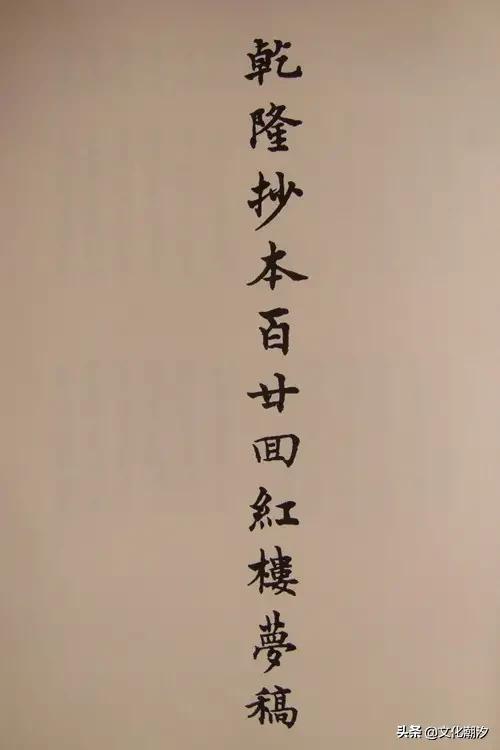 乾隆抄本百廿囬紅樓夢稿
头条 @文化潮汐